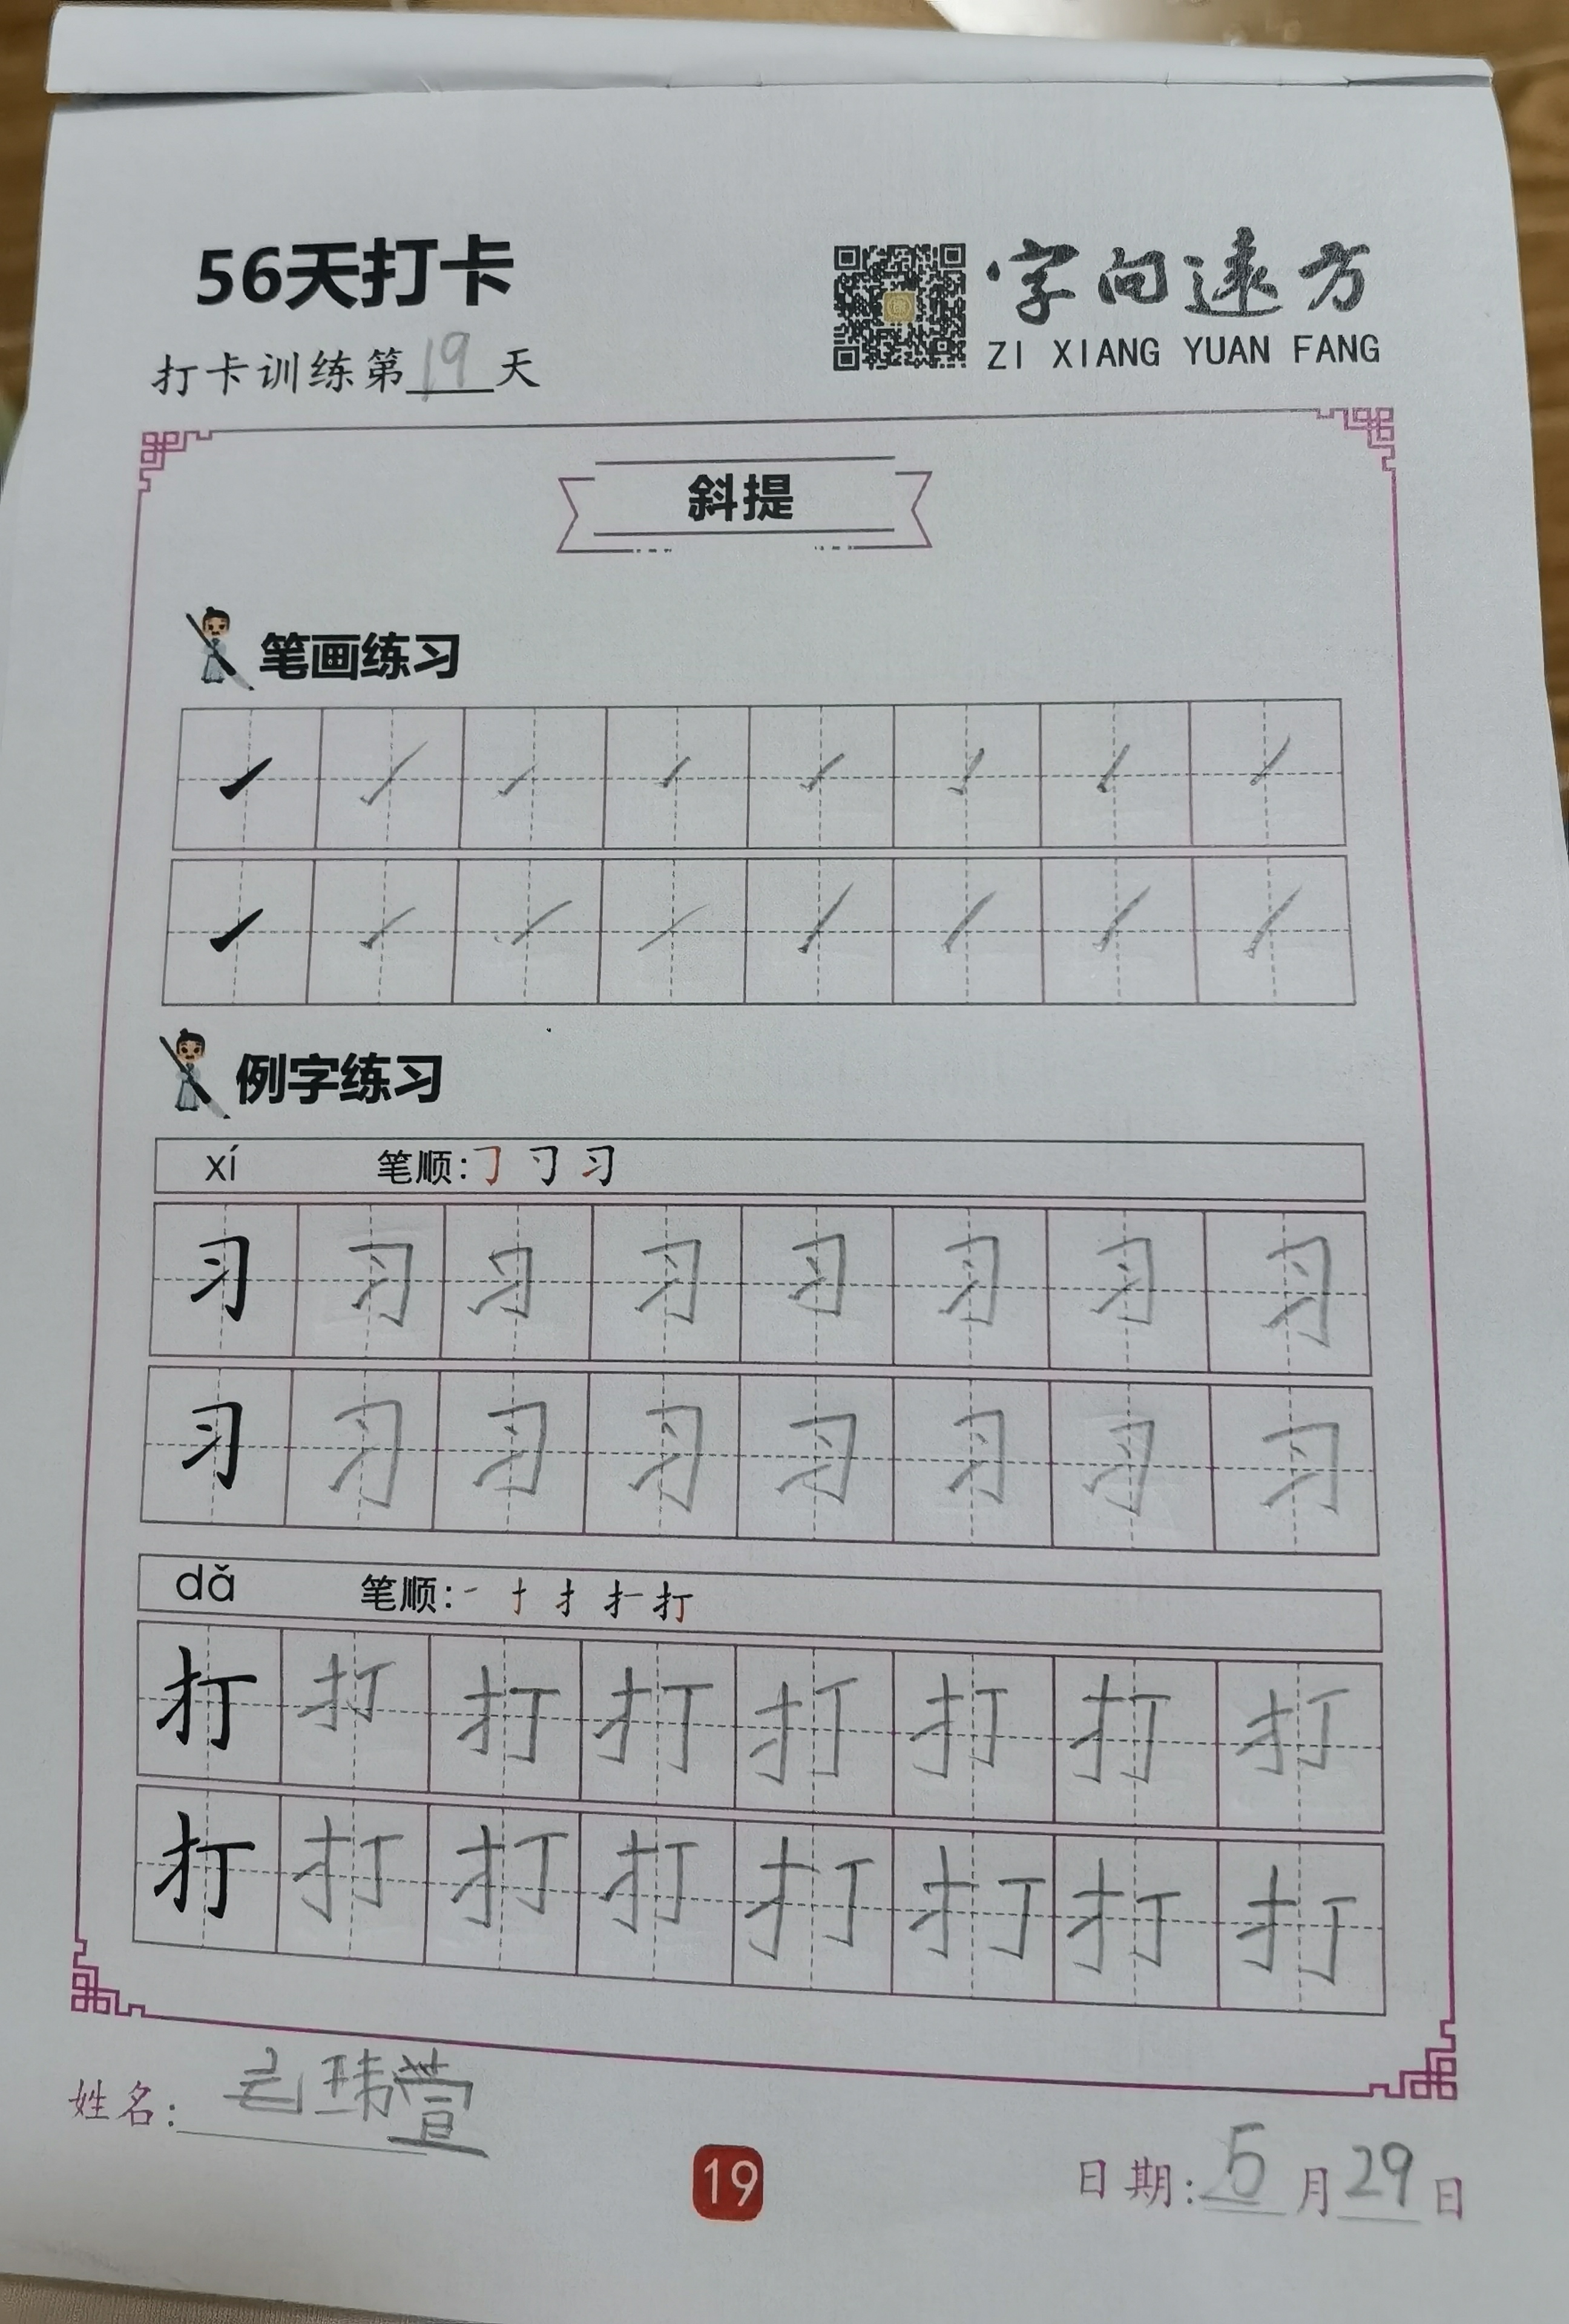 56天打卡
字向远方
打卡训练第19天
ZI XIANG YUAN FANG
斜提
笔画练习
例字练习
xí 笔顺:
习 习 习 习 习 习 习 习
习 习 习 习 习 习 习 习
dǎ 笔顺: 一 十 扌 扌一 打
打 打 打 打 打 打 打 打
打 打 打 打 打 打 打 打
姓名: 玮萱
19
日期:5月29日